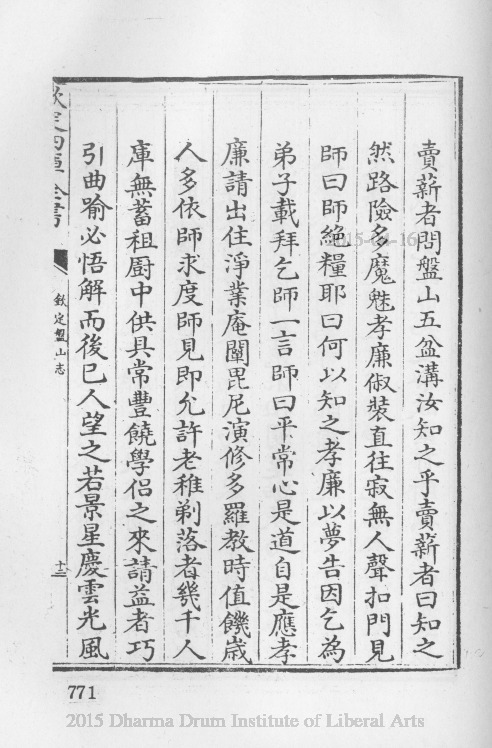 賣薪者問盤山五盆溝汝知之乎賣薪者曰知之
然路險多魔魅孝廉俶裝直往寂無人聲扣門見
師曰師絶糧耶曰何以知之孝廉以夢告因乞為
弟子載拜乞師一言師曰平常心是道自是應孝
廉請出住淨業庵闡毘尼演修多羅教時值饑歲
人多依師求度師見即允許老稚剃落者幾千人
庫無蓄租廚中供具常豐饒學侶之來請益者巧
引曲喻必悟解而後已人望之若景星慶雲光風
欽定四庫全書
欽定盤山志
十三
771
2015-04-16
2015 Dharma Drum Institute of Liberal Arts